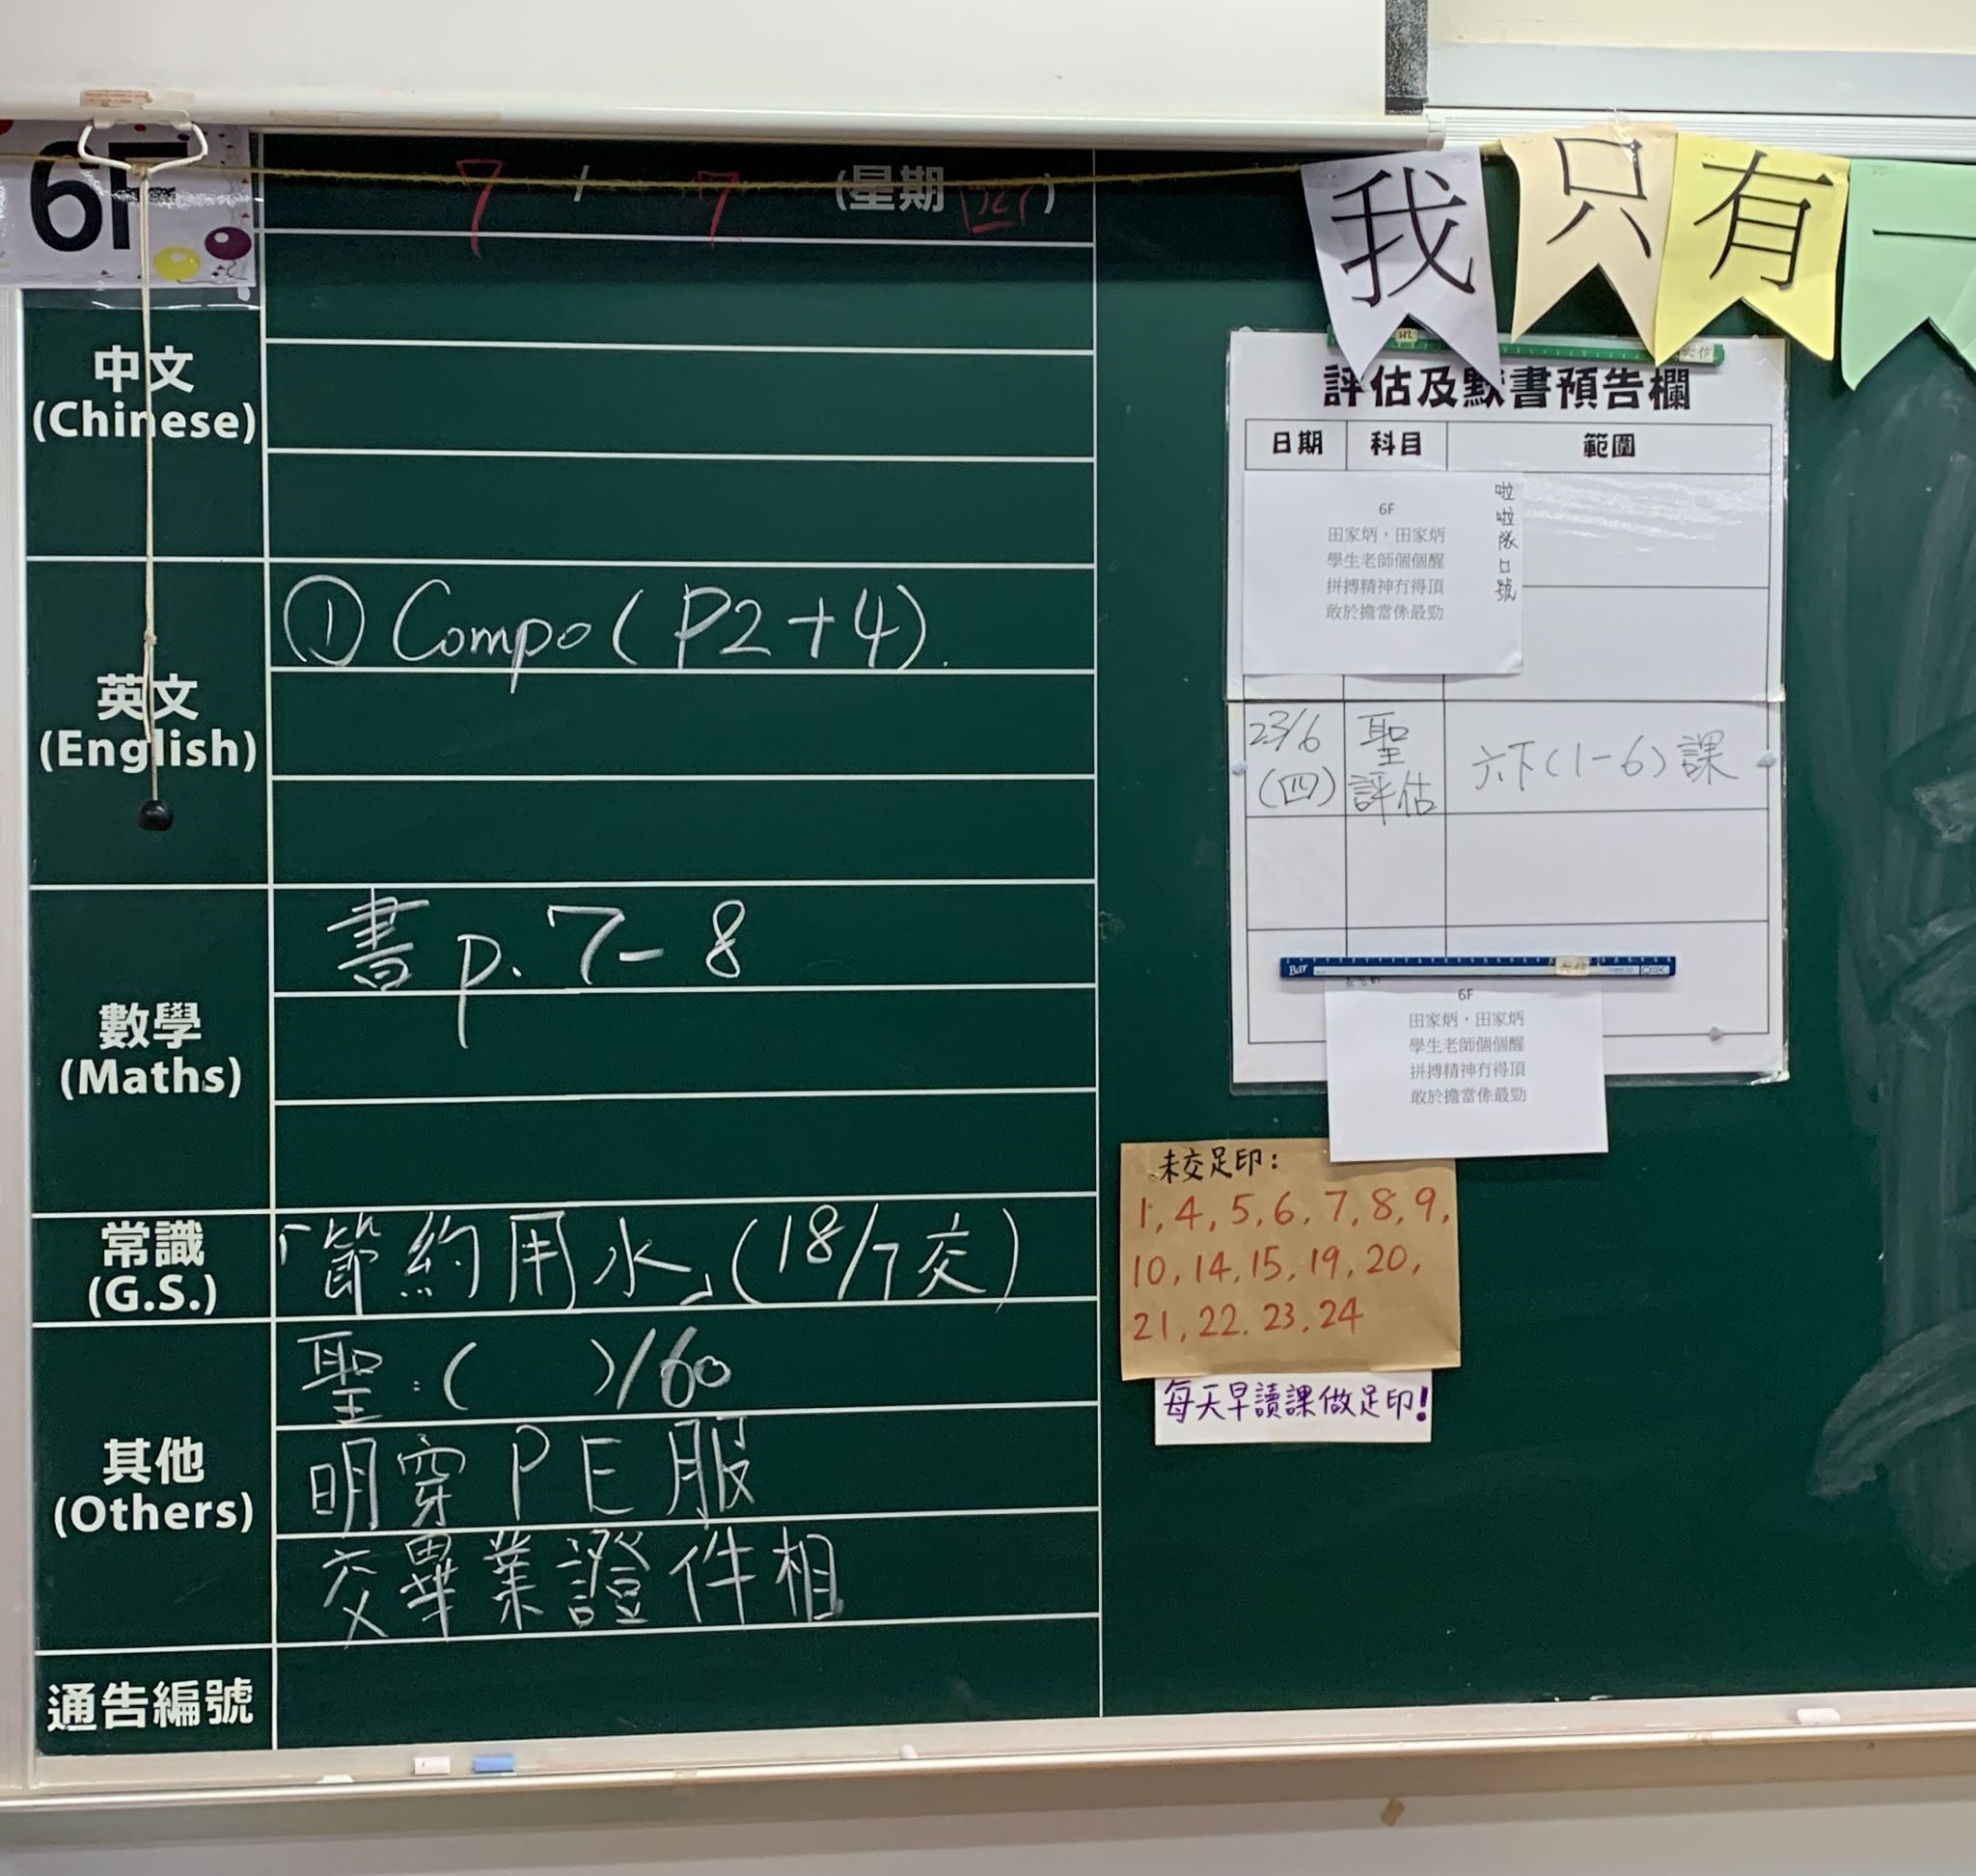 6F
7 / 7 (星期四)
中文
(Chinese)
英文
(English)
① Compo (P2+4).
數學
(Maths)
書 p. 7-8
常識
(G.S.)
「節約用水」(18/7交)
其他
(Others)
聖:(    )/60
明穿PE服
交畢業證件相
通告編號
我只有一
評估及默書預告欄
日期 科目 範圍
啦啦隊口號
6F
田家炳,田家炳
學生老師個個醒
拼搏精神冇得頂
敢於擔當係最勁
23/6
(四)
聖
評估
六下(1-6)課
Bar 六信
6F
田家炳,田家炳
學生老師個個醒
拼搏精神冇得頂
敢於擔當係最勁
未交足印:
1, 4, 5, 6, 7, 8, 9,
10, 14, 15, 19, 20,
21, 22, 23, 24
每天早讀課做足印!